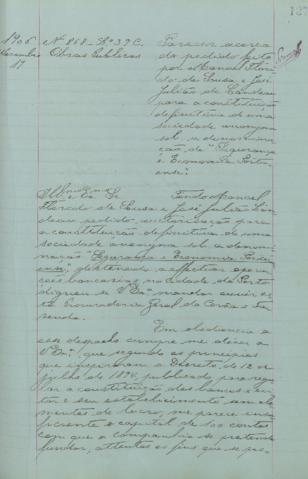 1906
Dezembro
17
Nº 868 - Lº 37 C.
Obras Publicas
Parecer acerca
do pedido feito
por Manoel Flo-
rido de Sousa e José
Julião de
para a constituição
definitiva de uma
sociedade anonyma
sob a denomi-
nação de "Esperança
e Economia Portu-
ense"
Illmo e Exmo Sr Tendo Manoel
Florido de Sousa e José Julião
pedido auctorisação para
a constituição definitiva de uma
sociedade anonyma sob a denomi-
nação "Esperança e Economia Portu-
ense", destinada a effectuar opera-
ções bancarias, na cidade do Porto
dignou-se V Exa mandar ouvir es-
ta Procuradoria Geral da Corôa e Fa-
zenda.
Em obediencia a
esse despacho cumpre-me dizer a
V Exa: que segundo os principios
que inspiraram o Decreto de 12 de
julho de 1894, publicado para regu-
lar a constituição dos bancos
e seu estabelecimento
de lucro, me parece insu-
fficiente o capital de 100 contos
com que a companhia se pretende
fundar, attentos os fins que se pro-